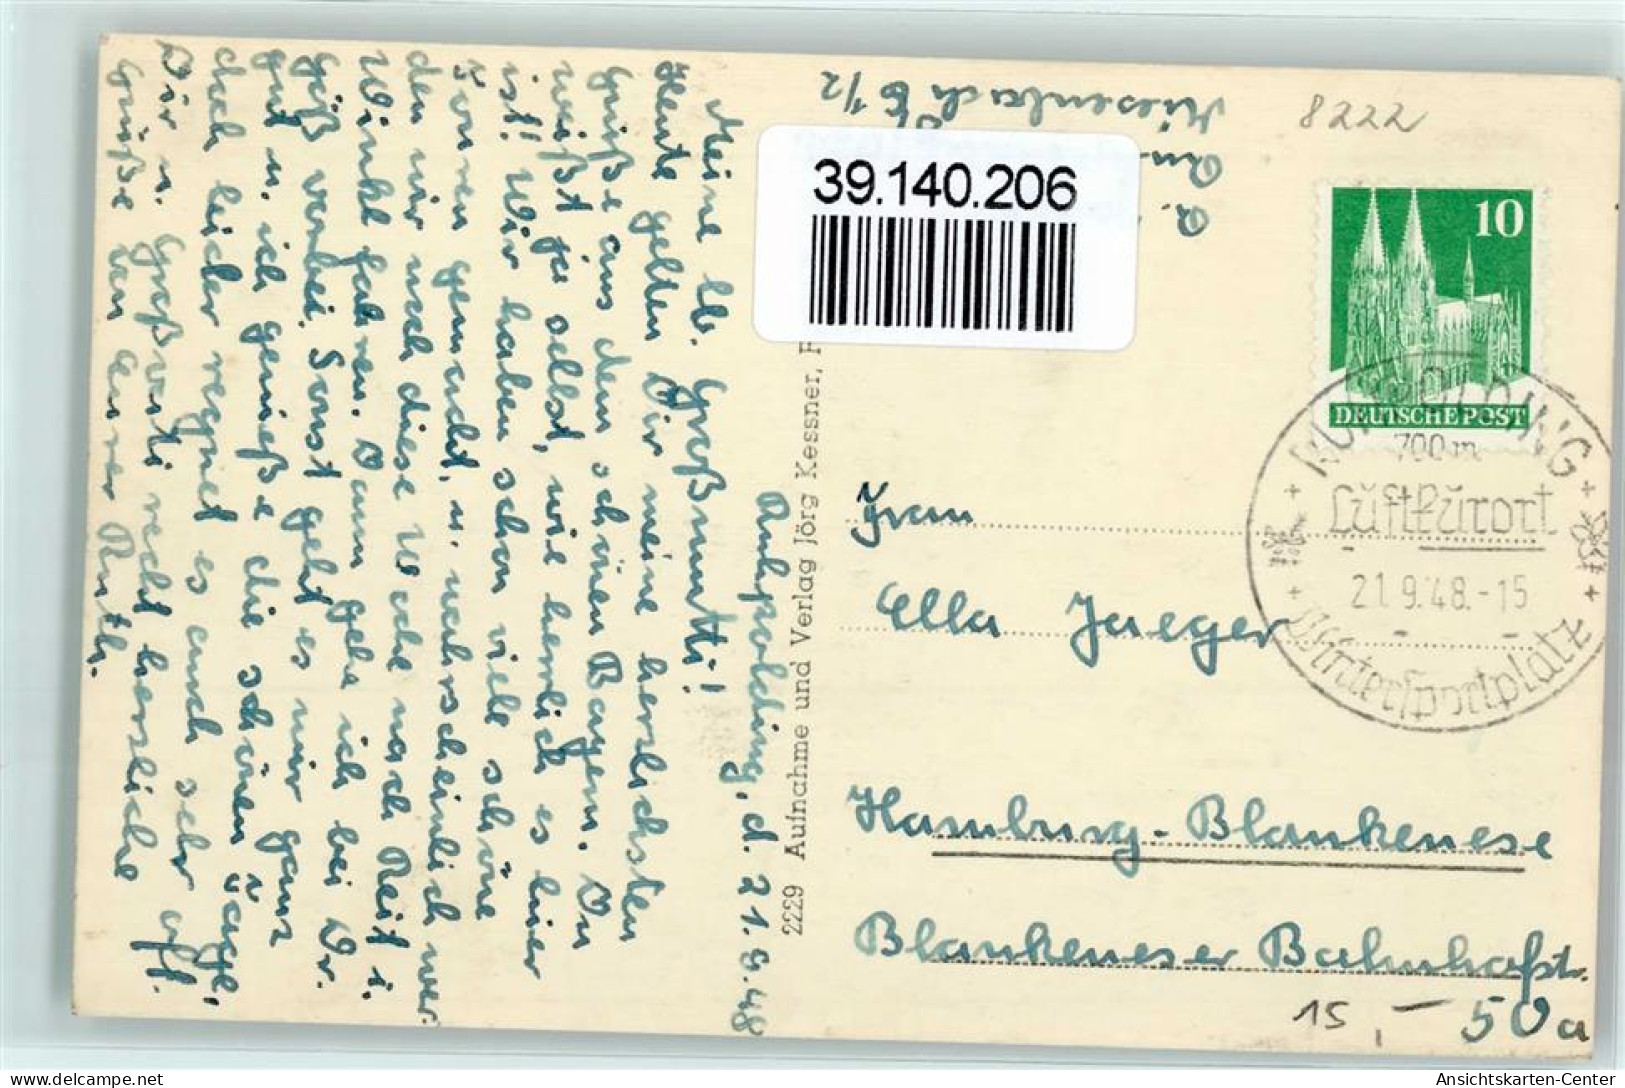 Ruhpolding, d. 21.9.48
Meine lb. Großmutti!
Heute gelten Dir meine herzlichsten
Grüße aus dem schönen Bayern. Du
weißt ja selbst, wie herrlich es hier
ist! Wir haben schon viele schöne
Touren gemacht, u. wahrscheinlich wer
den wir noch diese Woche nach Reit i.
Winkl fahren. Dann gehe ich bei Dr.
Göß vorbei. Sonst geht es mir ganz
gut u. ich genieße die schönen Tage,
doch leider regnet es auch sehr oft.
Dir u. Großvati recht herzliche
Grüße von Eurer Ruth.
2229 Aufnahme und Verlag Jörg Kessner,
Miesenbach 6 1/2
39.140.206
8222
10
DEUTSCHE POST
RUHPOLDING
700 m
Luftkurort
21.9.48.-15
Wintersportplatz
Frau
Ella Jaeger
Hamburg-Blankenese
Blankeneser Bahnhofstr.
50a
15,-
Ansichtskarten-Center